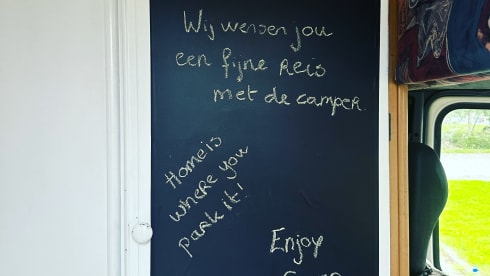 Wij wensen jou
een fijne reis
met de camper.
Home is
where you
park it!
Enjoy